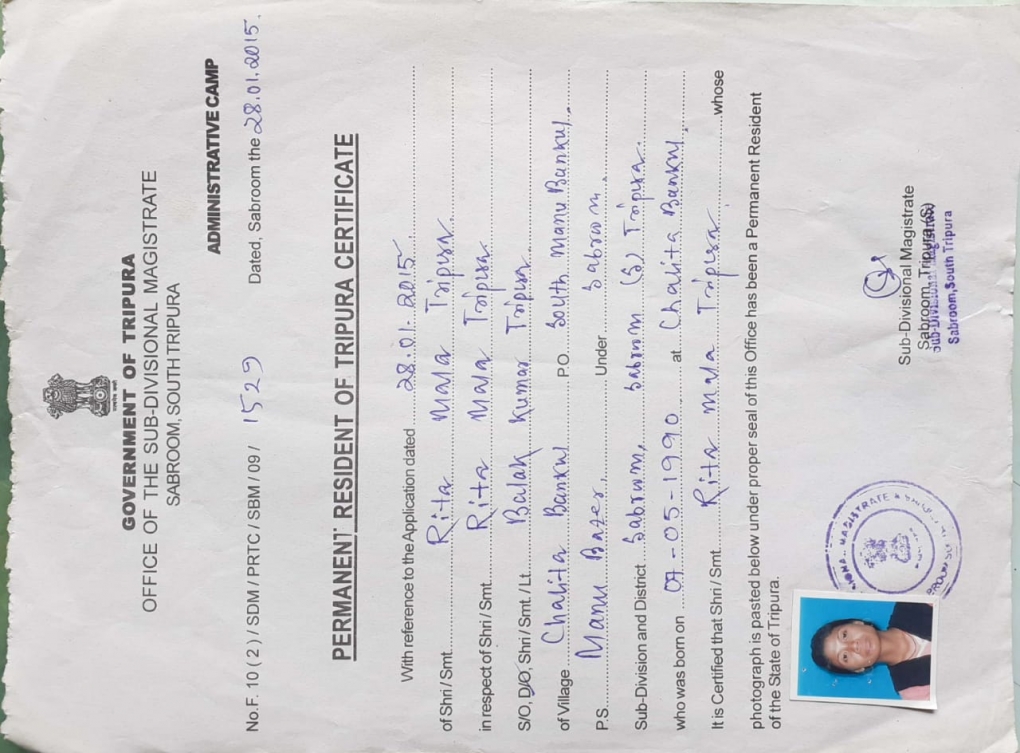 सत्यमेव जयते
GOVERNMENT OF TRIPURA
OFFICE OF THE SUB-DIVISIONAL MAGISTRATE
SABROOM, SOUTH TRIPURA
ADMINISTRATIVE CAMP
No.F. 10 ( 2 ) / SDM / PRTC / SBM / 09 / 1529 Dated, Sabroom the 28.01.2015.
PERMANENT RESIDENT OF TRIPURA CERTIFICATE
With reference to the Application dated 28.01.2015
of Shri / Smt. Rita Mala Tripura.
in respect of Shri / Smt. Rita Mala Tripura
S/O, D/O, Shri / Smt. / Lt. Balak Kumar Tripura.
of Village Chalita Bankul P.O. South Manu Bankul.
P.S. Manu Bazer, Under Sabroom
Sub-Division and District Sabroom, Sabroom (S) Tripura.
who was born on 07-05-1990 at Chalita Bankul.
It is Certified that Shri / Smt. Rita Mala Tripura whose
photograph is pasted below under proper seal of this Office has been a Permanent Resident
of the State of Tripura.
Sub-Divisional Magistrate
Sabroom, Tripura (S)
Sub-Divisional Magistrate
Sabroom, South Tripura
MAGISTRATE